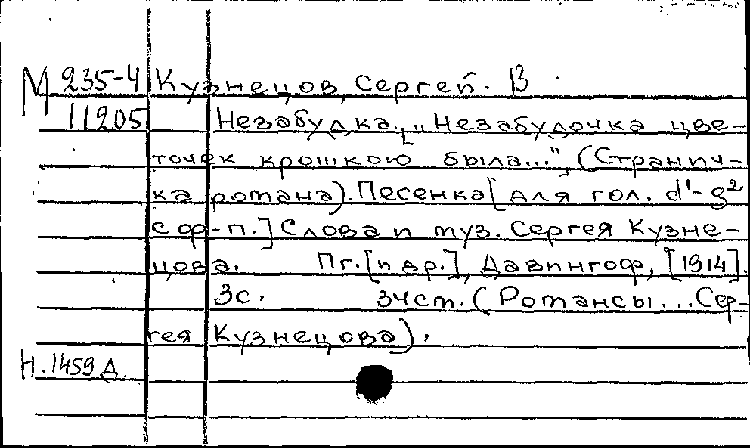 М 235-4 Кузнецов, Сергей. В
11205 Незабудка. [„Незабудочка цве-
точек крошкою была...", (Странич-
ка романа). Песенка [для гол. d¹-g²
с ф-п.] Слова и муз. Сергея Кузне-
цова. Пг. [и др.], Давингоф, [1914].
3с. 3чст. (Романсы... Сер-
гея Кузнецова).
Н.1459Д